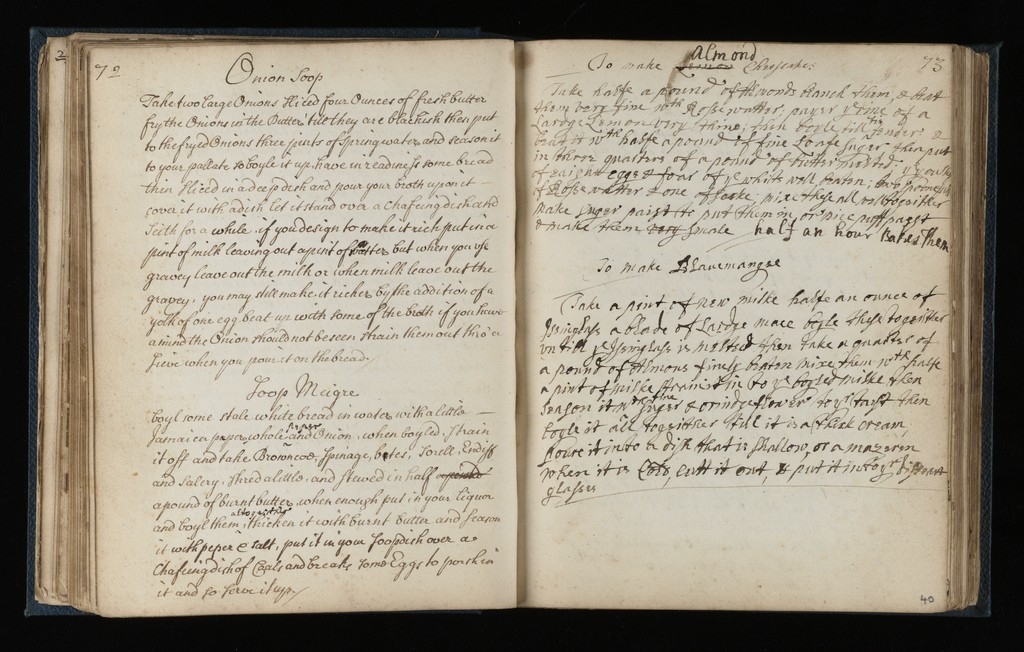 2
72
Onion Soop
Take two large Onions sliced four Ounces of fresh butter
fry the Onions in the Butter till they are blackish then put
to the fryed Onions three pints of Spring water, and season it
to your pallate, so boyle it up, have in readiness some bread
thin sliced in a deep dish and pour your broth upon it
cover it with a dish let it stand over a Chafeing dish and
Seith for a while, if you design to make it rich put in a
pint of milk leaving out a pint of water but when you use
gravey leave out the milk or when milk leave out the
gravey, you may still make it richer by the addition of a
yolk of one egg beat up with some of the broth if you have
a mind the Onion should not be seen strain them out thro' a
sieve when you pour it on the bread.
Soop Meigre
boyl some stale white bread in water with a little
Jamaica peper whole peper and Onion, when boyled, strain
it off and take Spinage, betes, Sorill, Endiff
and Salery, shred a little, and stewed in half
a pound of burnt butter, when enough put in your liquor
and boyl them altogeither, thicken it with burnt butter and season
it with peper & salt, put it in your Soop dish over a
Chafeing dish of Coals and breake some Eggs to porsh in
it and so serve it up.
73
To make Almond Cheescake:
Take halfe a pound of Almonds blanch them, & beat
them very fine wth Rosewatter, payer ye rine of a
Lardge Lemon very thine, then boyle till tender &
beat it wth halfe a pound of fine Loafe suger then put
in three quarters of a pound of butter melted, ye yoalks
of eaight eggs & foar of ye whits well beaten, two spoonfulls
of Rose watter & one of sacke, mixe these all well togeither
make suger paist to put them in or nice puff paest
& make them very smale half an hour bakes them
To make Blauemange
Take a pint of new milke halfe an ounce of
Isinglass a blade of Lardge mace boyle these togeither
untill ye Isinglass is melted then take a quarter of
a pound of Almons finely beaten mixe them wth halfe
a pint of milke straine it in to ye boyled milke then
season it wth fine suger & orindge flower to yr taist then
boyle it all togeither till it is a thick cream,
poure it into a dish that is shallow, or a mazerin
when it is Cold, cutt it out, & put it into
glasses
40